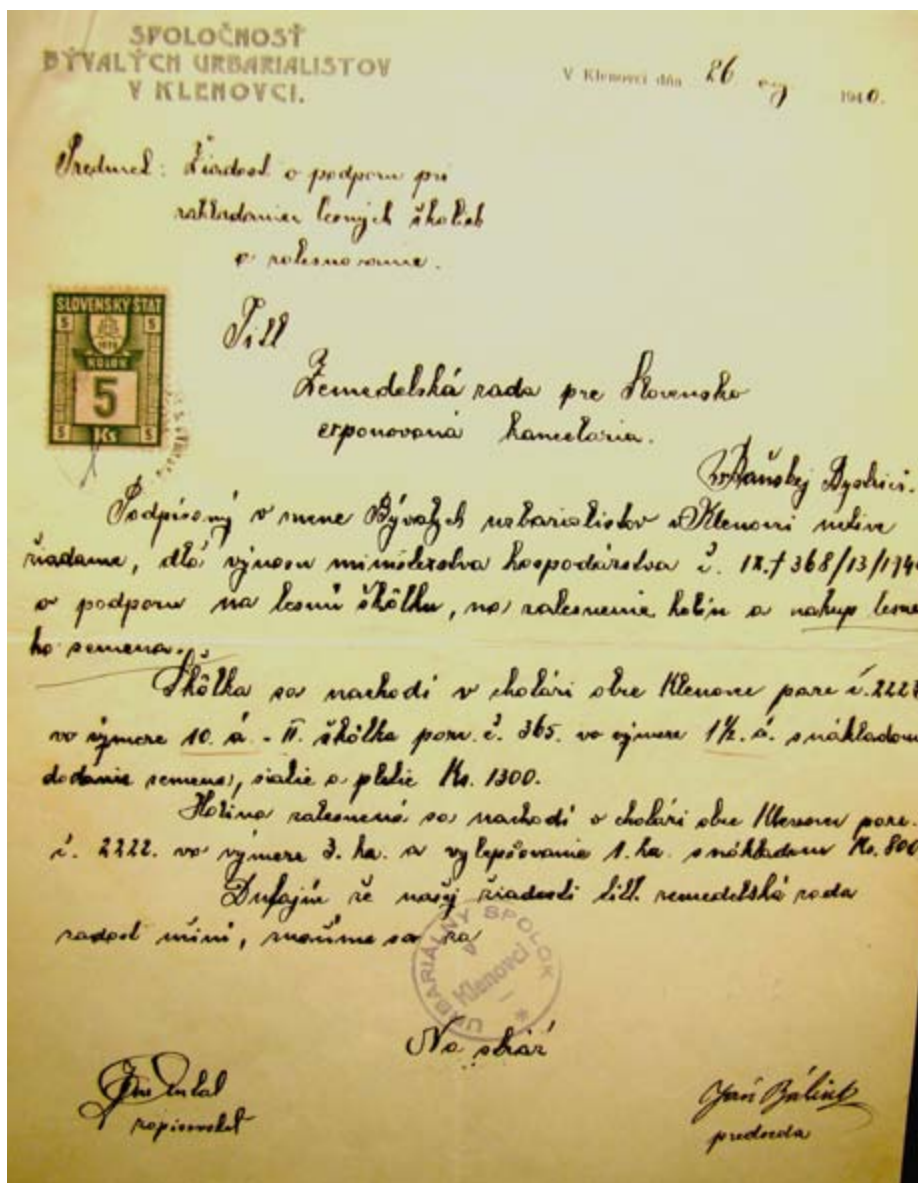 SPOLOČNOSŤ
BÝVALÝCH URBARIALISTOV
V KLENOVCI.
V Klenovci dňa 26 1940.
Predmet: Žiadosť o podporu pri
zakladaniu lesných školiek
a zalesnovanie.
SLOVENSKÝ ŠTÁT
5 5
KOLOK
5
5 Ks 5
Titl
Zemedelská rada pre Slovensko
exponovaná kancelaria.
v Baňskej Bystrici.
Podpísaný v mene Bývalých urbarialistov v Klenovci uctive
žiadame, dľa výnosu ministerstva hospodárstva č.
o podporu na lesnú škôlku, na zalesnenie holín a nákup lesné
ho semena.
Škôlka sa nachodí v chotári obce Klenovec parc č. 222
vo výmere 10. á - II. škôlka parc. č. 365. vo výmere 1½. á. s nákladom
dodanie semena, siatie a pletie Ks. 1300.
Holina zalesnená sa nachodí v chotári obce Klenovec parc.
č. 2222. vo výmere 3. ha. a vylepšovanie 1. ha. s nákladom Ks. 800
Dufajúc že našej žiadosti titl. zemedelská rada
zadosť učiní, značíme sa za
URBARIÁLNY SPOLOK
v
Klenovci
Na stráž
zapisovateľ
Ján Bálint
predseda